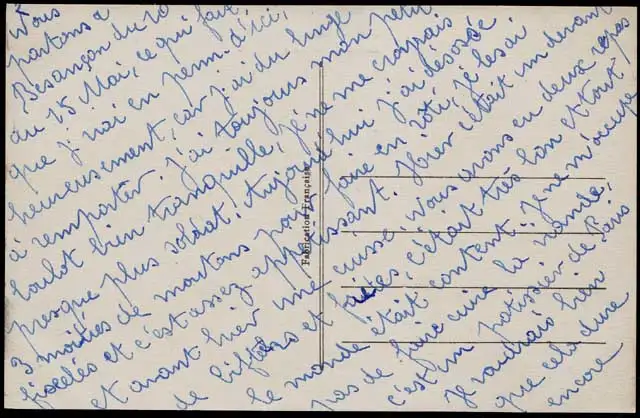 Nous
partons à
Besançon du 10
au 15 Mai, ce qui fait
que j'irai en perm. d'ici,
heureusement, car j'ai du linge
à remporter. J'ai toujours mon petit
boulot bien tranquille, je ne me croyrais
presque plus soldat. Aujourd'hui j'ai désossé
3 moitiés de moutons pour faire en rôti, je les ai
ficelés et c'est assez appétissant. Hier c'était un devant
et avant hier une cuisse, Nous avons eu deux repas
de et c'était très bon et tout
le monde était content. Je ne m'occupe
pas de faire cuire la viande,
c'est un patissier de Paris
Je voudrais bien
que cela dure
encore
Fabrication Française